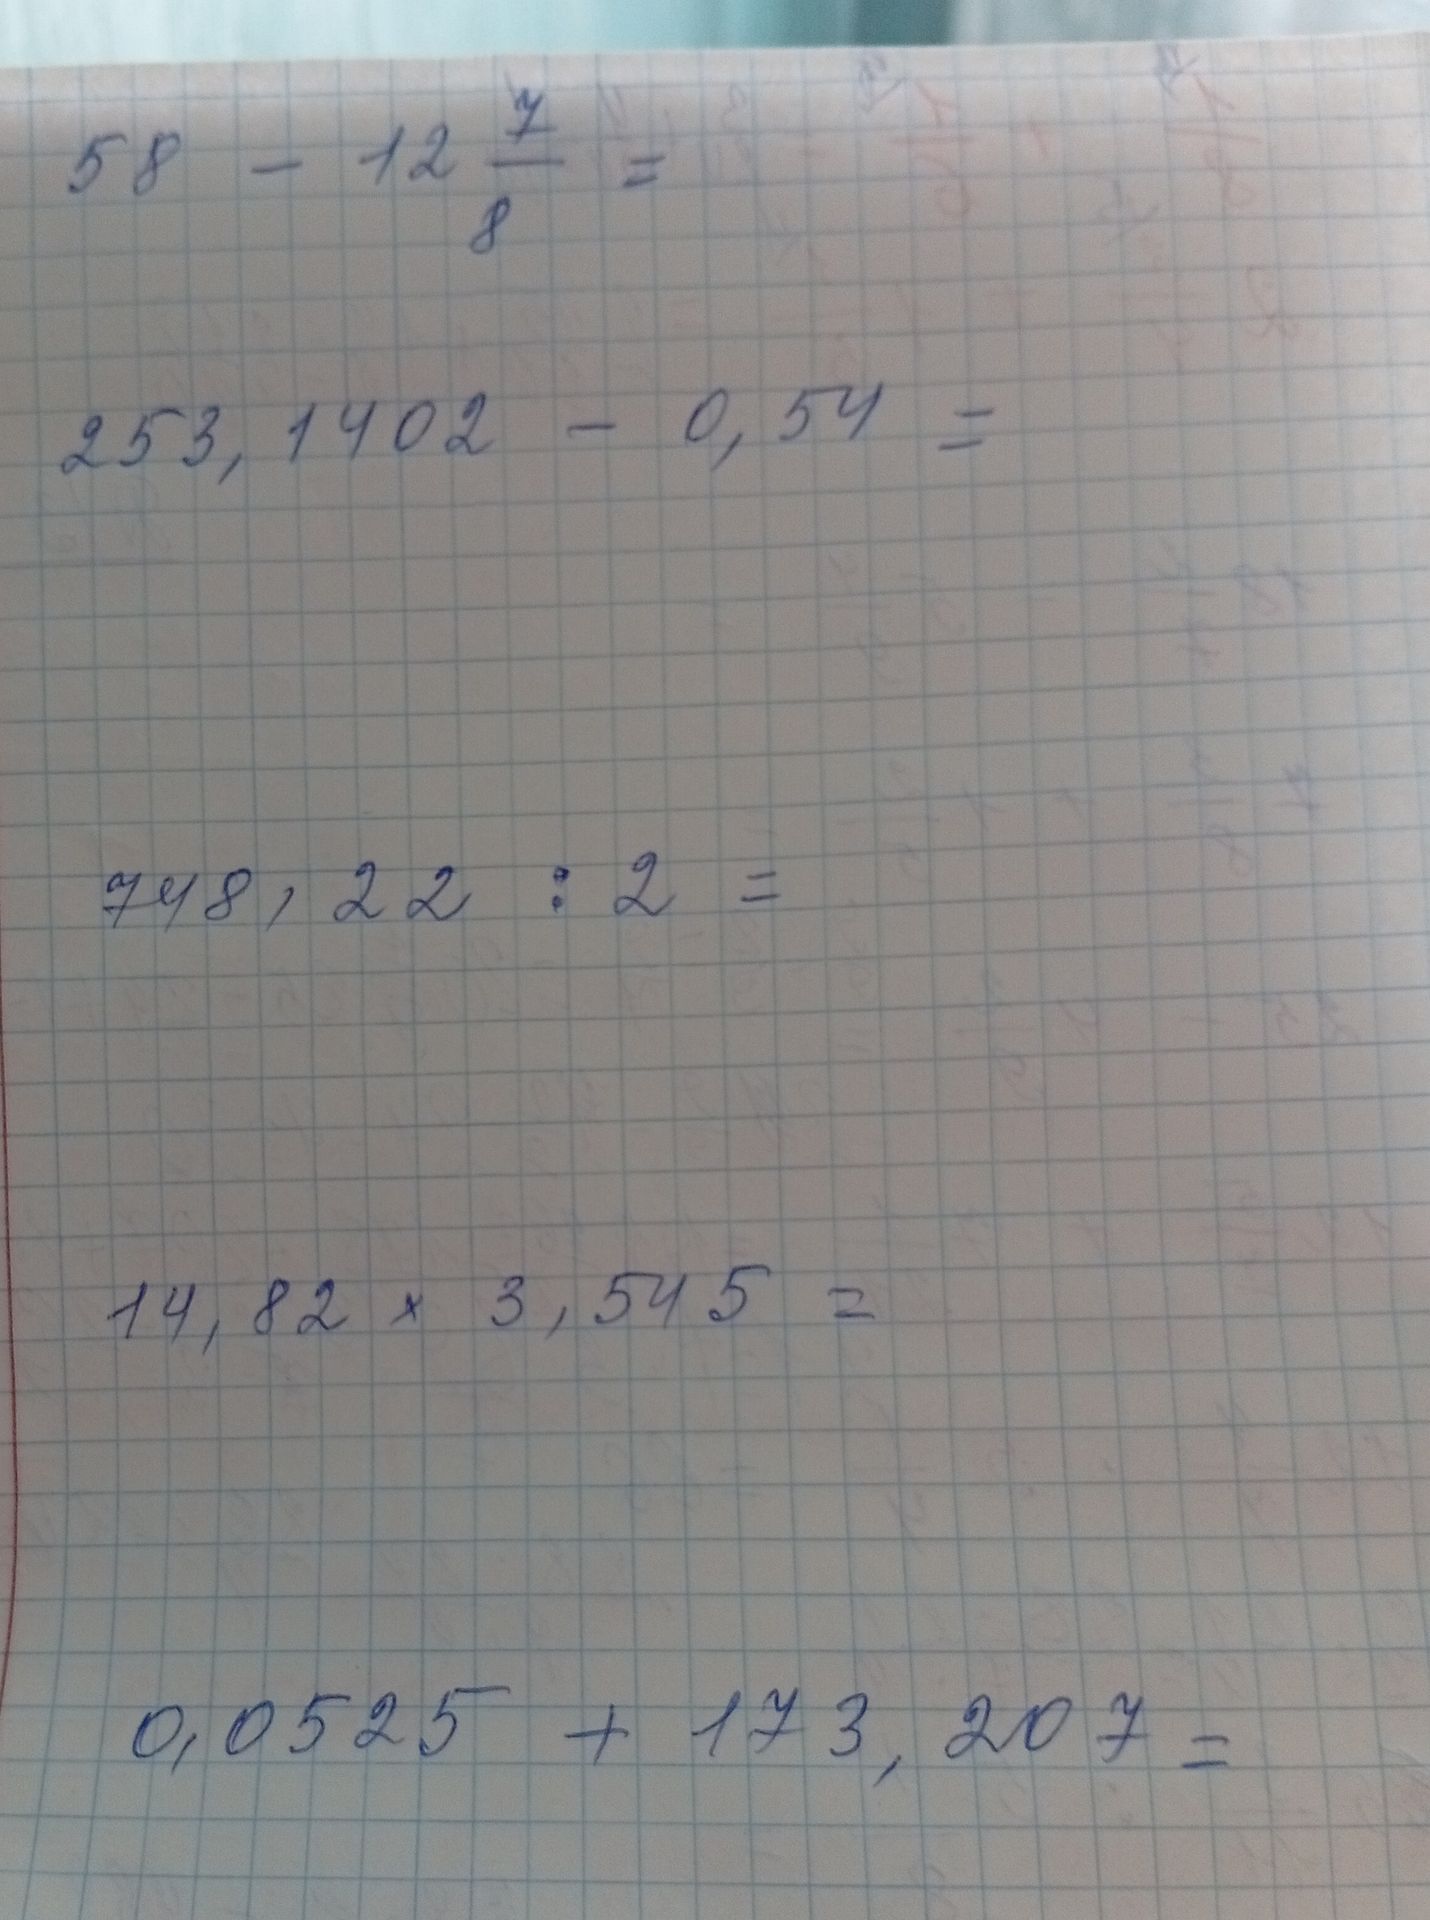 58 - 12 7/8 =
253,1402 - 0,54 =
748,22 : 2 =
14,82 × 3,545 =
0,0525 + 173,207 =